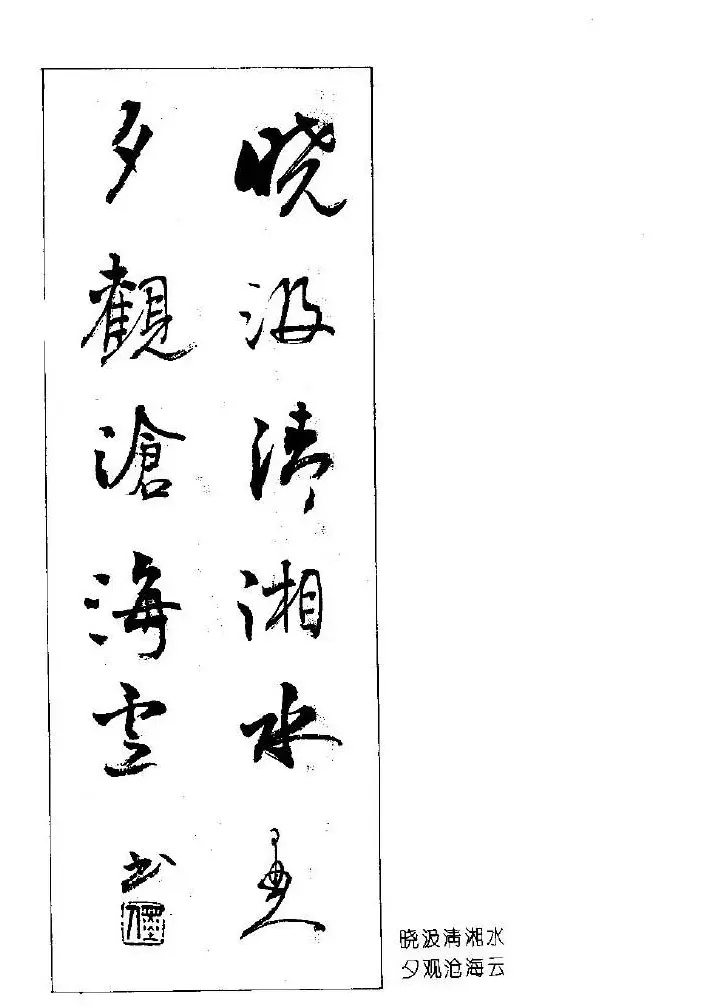 晓汲清湘水
夕觀滄海雲 书
晓汲清湘水
夕观沧海云